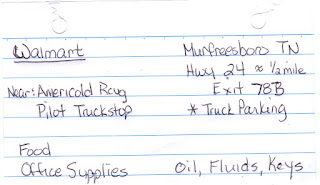 Walmart Murfreesboro TN
Hwy 24 ≈ 1/2 mile
Near: Americold Rcvg Exit 78B
Pilot Truckstop * Truck Parking
Food
Office Supplies Oil, Fluids, Keys